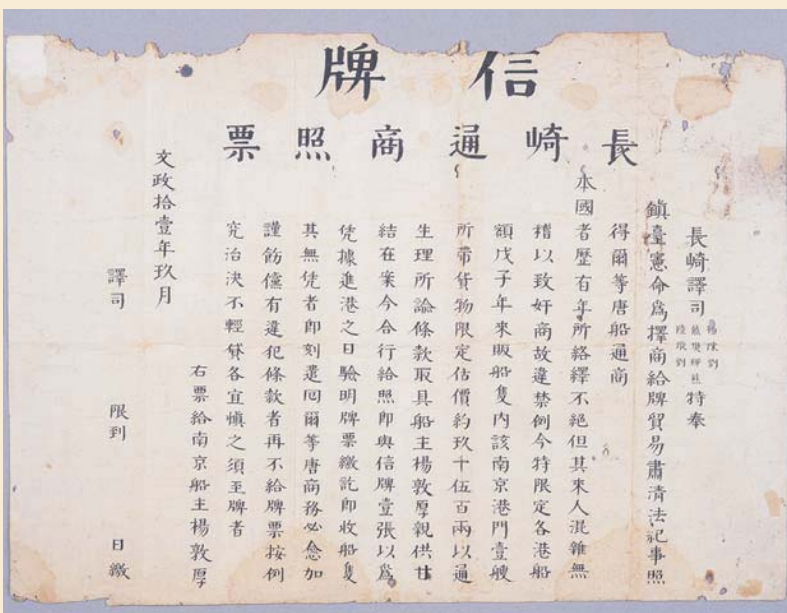 信牌
長崎通商照票
長崎譯司特奉
鎮臺憲命爲擇商給牌貿易肅清法紀事照
得爾等唐船通商
本國者歷有年所絡繹不絕但其來人混雜無
稽以致奸商故違禁例今特限定各港船
額戊子年來販船隻內該南京港門壹艘
所帶貨物限定估價約玖千伍百兩以通
生理所諭條款取具船主楊敦厚親供甘
結在案今合行給照即與信牌壹張以爲
凭據進港之日驗明牌票繳訖即收船隻
其無凭者即刻遣囘爾等唐商務必愈加
謹飭儻有違犯條款者再不給牌票按例
究治決不輕貸各宜慎之須至牌者
右票給南京船主楊敦厚
文政拾壹年玖月
譯司 限到 日繳